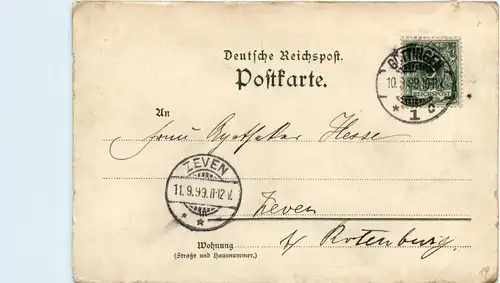 Deutsche Reichspost.
Postkarte.
GÖTTINGEN
10.9.99.
1 C
REICHSPOST
An
Frau Apotheker Hesse
ZEVEN
11.9.99.11-12V.
Zeven
b/ Rotenburg.
Wohnung
(Straße und Hausnummer.)